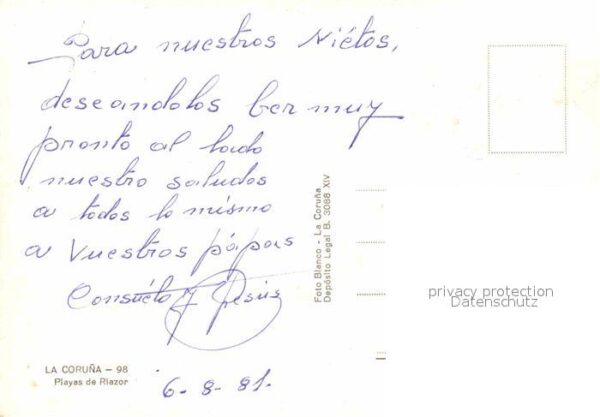 Para nuestros Niétos,
deseandolos ber muy
pronto al lado
nuestro saludos
a todos lo mismo
a Vuestros pápas
Consuélo y Jesús
6-8-81.
LA CORUÑA – 98
Playas de Riazor
Foto Blanco - La Coruña
Depósito Legal B. 3088 XIV
privacy protection
Datenschutz